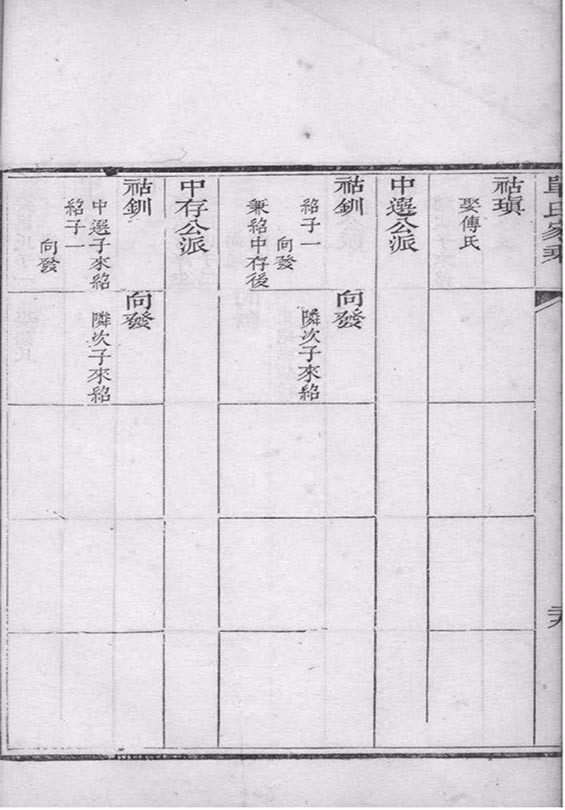 單氏家乘
祜瑱
娶傳氏
中選公派
祜釧
紹子一
向發
兼紹中存後
向發
隣次子來紹
中存公派
祜釧
中選子來紹
紹子一
向發
向發
隣次子來紹